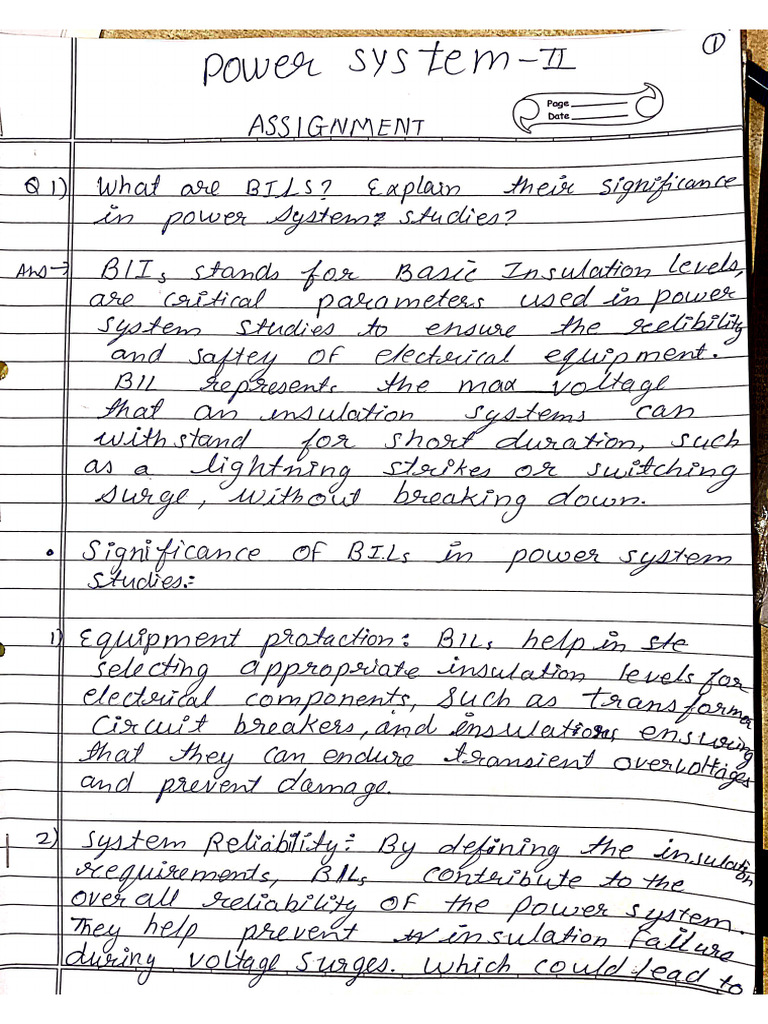 ①
Power System-II
ASSIGNMENT
Page
Date
Q 1) What are BILS? Explain their significance
in power Systems studies?
Ans→ BIIs stands for Basic Insulation levels,
are critical parameters used in power
system studies to ensure the relibility
and saftey of electrical equipment.
BIL represents the max voltage
that an insulation systems can
withstand for short duration, such
as a lightning strikes or switching
surge, without breaking down.
• Significance of BILs in power system
studies:
1) Equipment protaction: BILs help in ste
selecting appropriate insulation levels for
electrical components, such as transformer
circuit breakers, and insulations ensuring
that they can endure transient overvoltages
and prevent damage.
2) System Reliability: By defining the insulation
requirements, BILs contribute to the
overall reliability of the power system.
They help prevent insulation failure
during voltage surges. Which could lead to